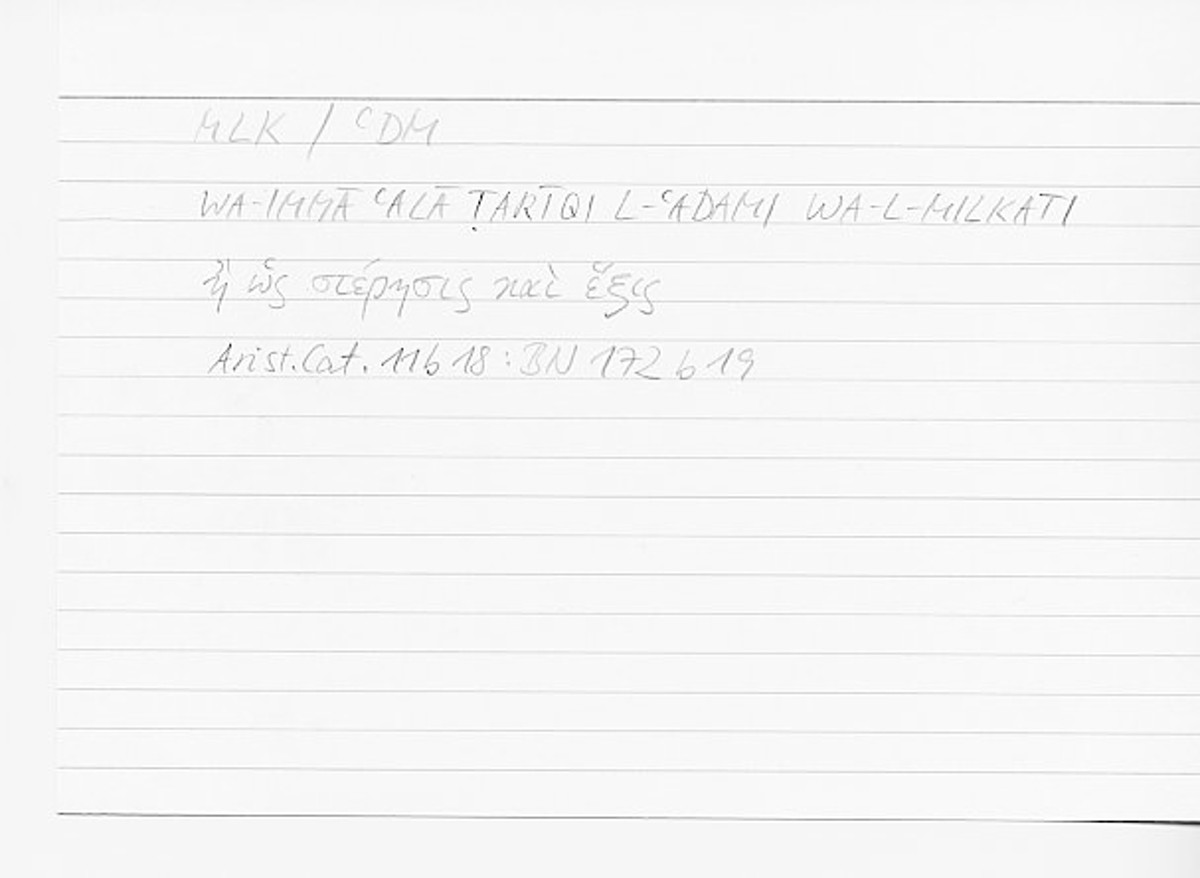 MLK / ʿDM
WA-IMMĀ ʿALĀ ṬARĪQI L-ʿADAMI WA-L-MILKATI
ἢ ὡς στέρησις καὶ ἕξις
Arist. Cat. 11b 18 : BN 172 b 19